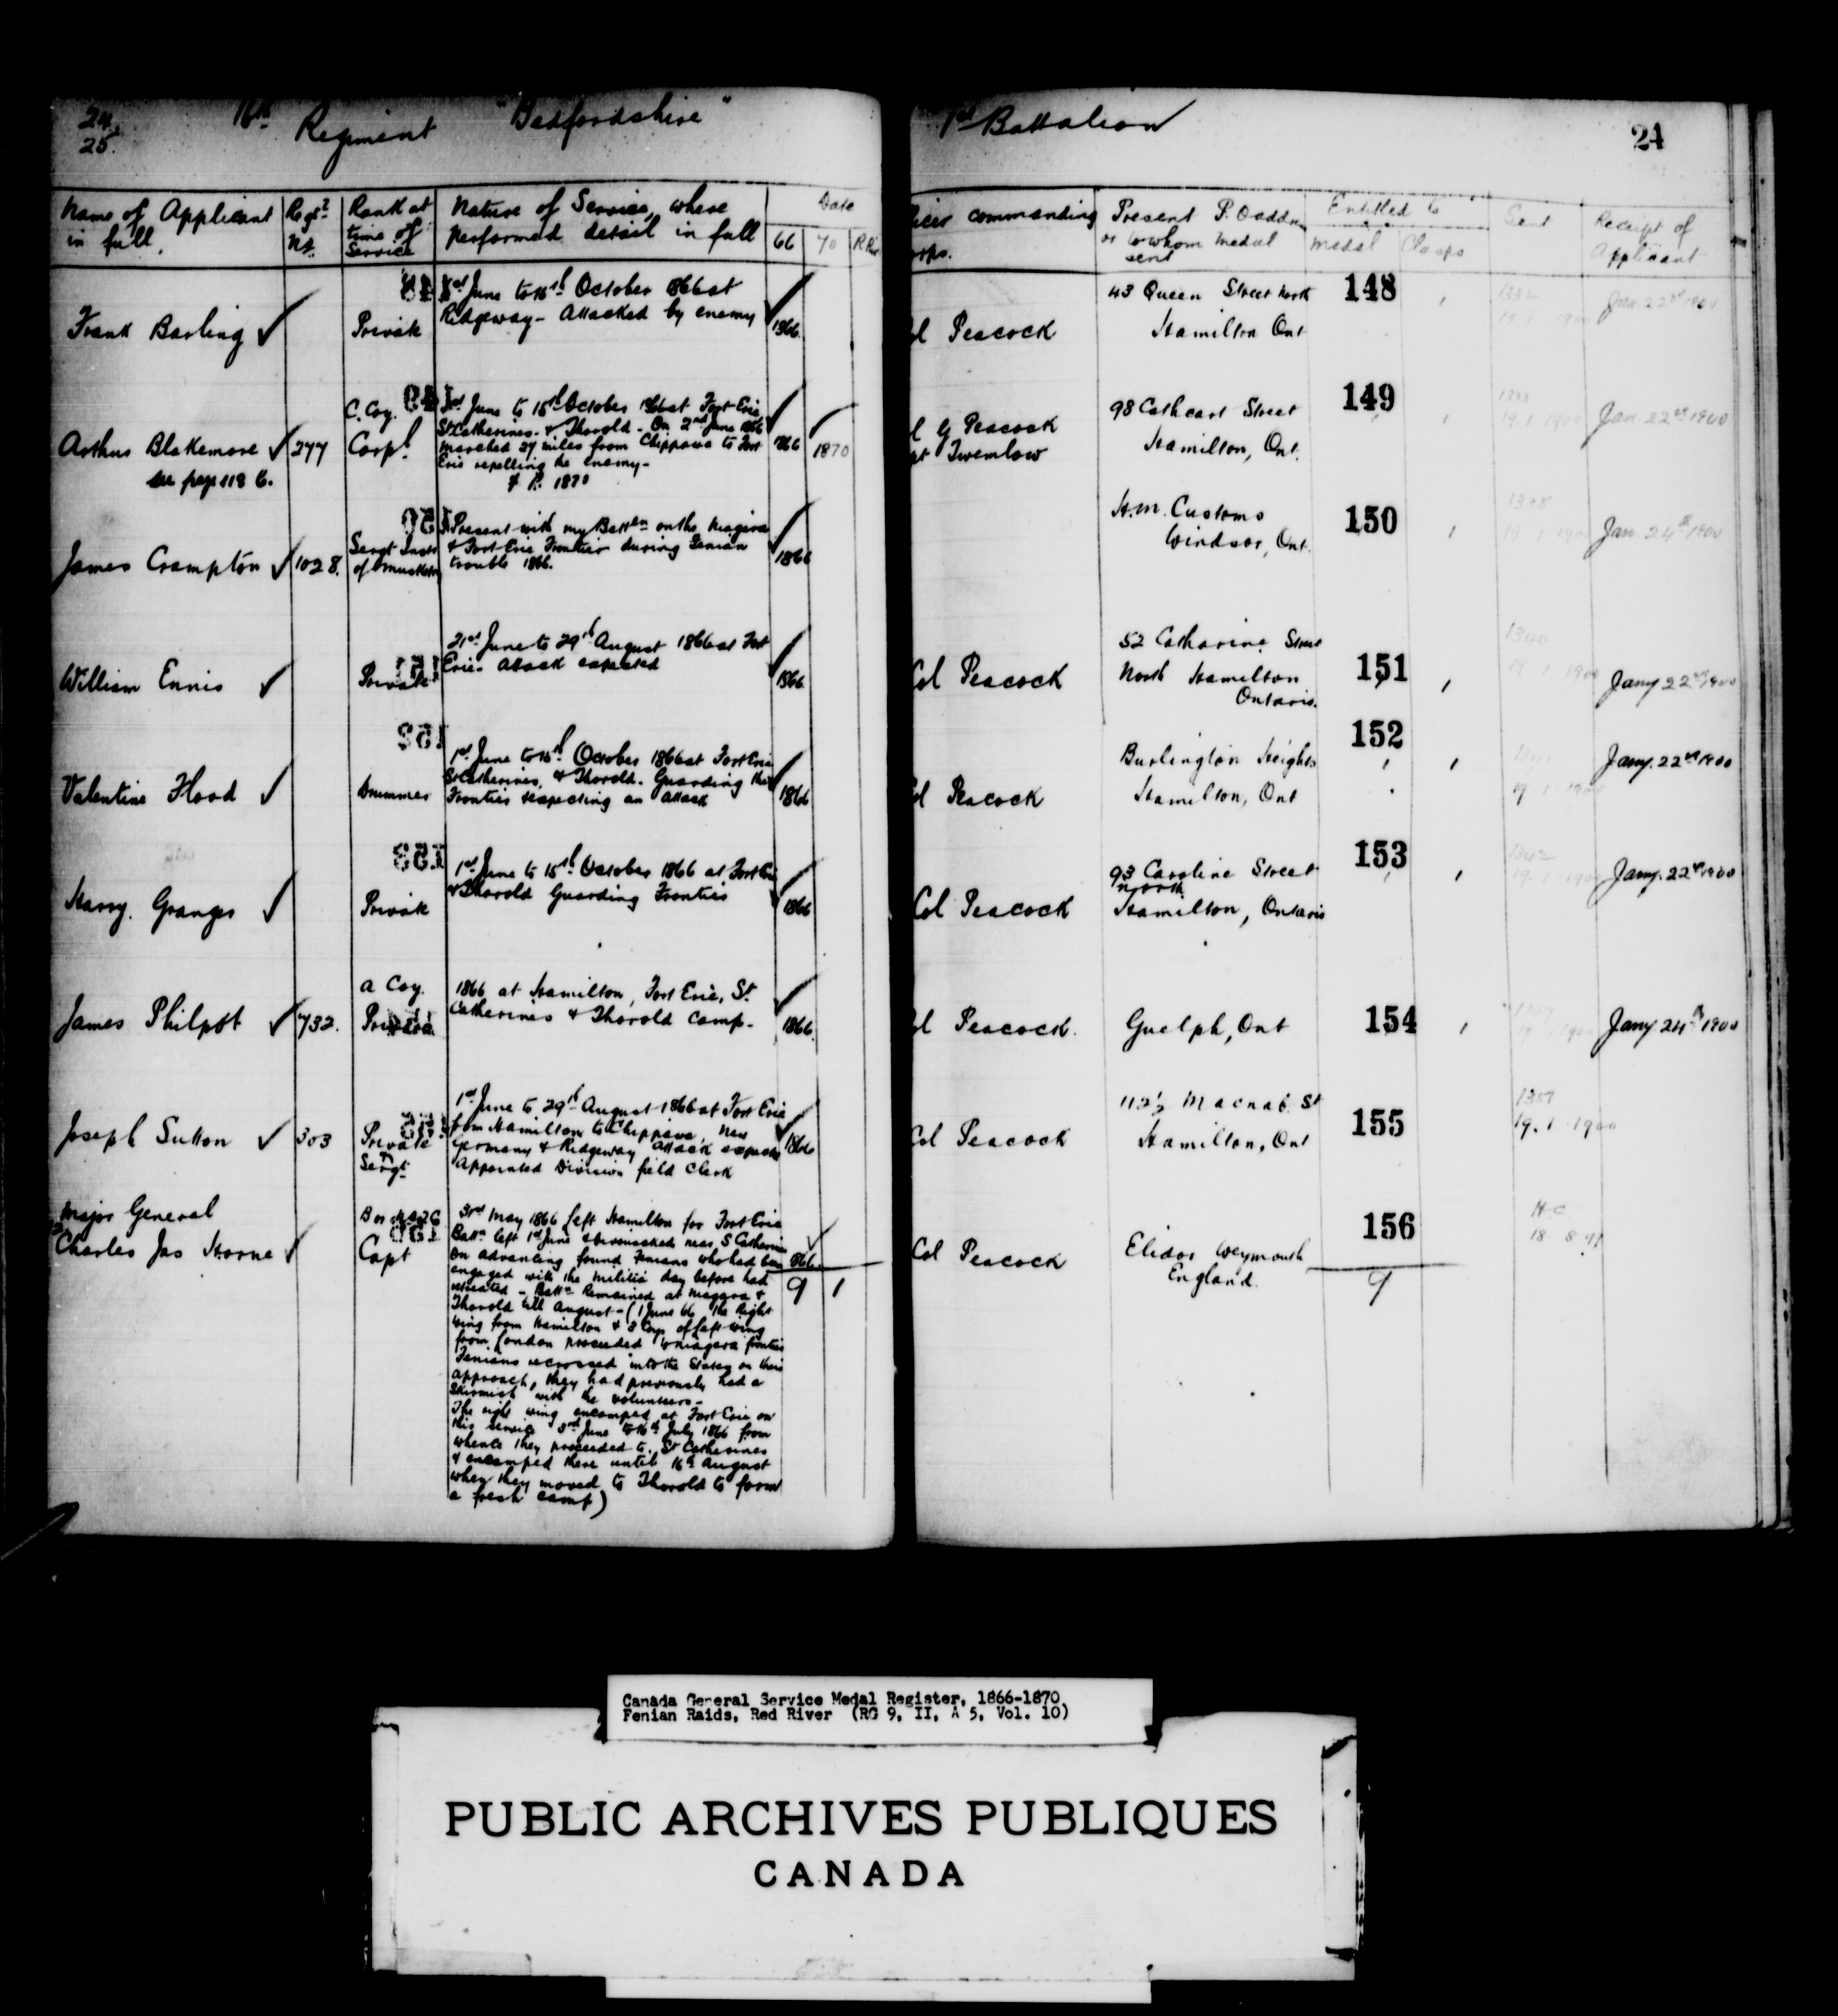 24
25
16th Regiment "Bedfordshire"
1st Battalion
24
Name of Applicant
in full.
Regtl
No.
Rank at
time of
Service
Nature of Service, where
performed detail in full
Date
66
70
commanding
Present P.O. addre
or to whom Medal
sent
Entitled to
Medal
Clasps
Sent
Receipt of
Applicant
Frank Barling ✓
Private
1st June to 15th October 1866 at
Ridgeway - Attacked by enemy
1866
Peacock
43 Queen Street North
Hamilton Ont
148
1332
19.1.1900
Jan. 22nd 1900
Arthur Blakemore ✓
see page 118 b.
277
C. Coy.
Corpl
1st June to 15th October 1866 at Fort Erie
St Catherines & Thorold - On 2nd June 1866
marched 27 miles from Chippawa to Fort
Erie repelling the enemy -
& R. 1870
1866
1870
G Peacock
Twemlow
98 Cathcart Street
Hamilton, Ont.
149
1333
19.1.1900
Jan 22nd 1900
James Crampton ✓
1028.
Sergt Instr
of Musketry
Present with my Battn on the Niagara
& Fort Erie Frontier during Fenian
trouble 1866.
1866
H.M. Customs
Windsor, Ont.
150
1338
19.1.1900
Jan. 24th 1900
William Ennis ✓
Private
21st June to 29th August 1866 at Fort
Erie - Attack expected
1866
Col Peacock
52 Catharine Street
North Hamilton
Ontario.
151
1340
19.1.1900
Jany 22nd 1900
Valentine Flood ✓
Drummer
1st June to 15th October 1866 at Fort Erie
St Catherines, & Thorold. Guarding the
Frontier expecting an attack
1866
Peacock
Burlington Heights
Hamilton, Ont
152
Jany. 22nd 1900
Harry. Granger ✓
Private
1st June to 15th October 1866 at Fort Erie
& Thorold Guarding Frontier
1866
Col Peacock
93 Caroline Street
North
Hamilton, Ontario
153
1342
19.1.1900
Jany. 22nd 1900
James Philpott ✓
732.
A Coy.
Private
1866 at Hamilton, Fort Erie, St.
Catherines & Thorold Camp -
1866
Peacock.
Guelph, Ont
154
Jany 24th 1900
Joseph Sutton ✓
303
Private
Sergt
1st June to 29th August 1866 at Fort Erie
from Hamilton to Chippawa, New
Germany & Ridgeway Attack expected
Appointed Division field Clerk
1866
Col Peacock
112½ Macnab St
Hamilton, Ont
155
1357
19.1.1900
Major General
Charles Jas Horne ✓
Capt
3rd May 1866 left Hamilton for Fort Erie
Battn left 1st June & bivouacked near St Catherines
on advancing found Fenians who had been
engaged with the militia day before had
retreated - Battn Remained at Niagara &
Thorold till August - (1 June 66 the Right
wing from Hamilton & 3 Coys of left wing
from London proceeded to Niagara frontier
Fenians recrossed into the States on their
approach, they had previously had a
skirmish with the volunteers -
The right wing encamped at Fort Erie on
this service 3rd June to 16th July 1866 from
whence they proceeded to St Catherines
& encamped there until 16th August
when they moved to Thorold to form
a fresh camp)
1866
9
1
Col Peacock
Elidor Weymouth
England.
156
9
H.C.
Canada General Service Medal Register, 1866-1870
Fenian Raids, Red River (RG 9, II, A 5, Vol. 10)
PUBLIC ARCHIVES PUBLIQUES
CANADA